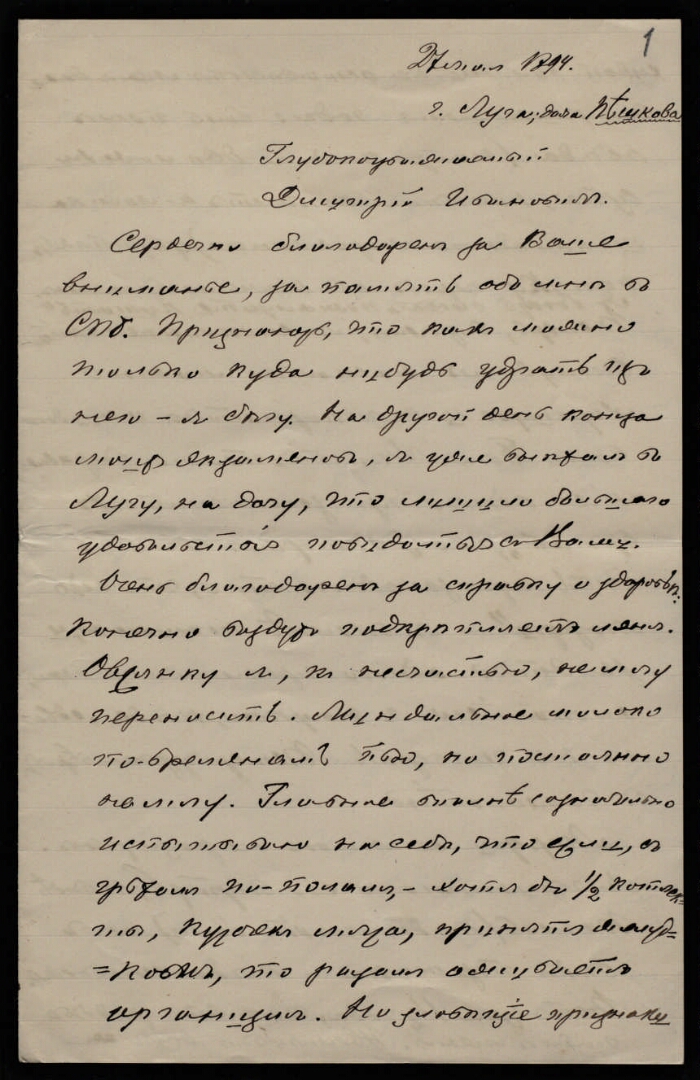 1
27 мая 1894.
г. Луга, дача Пѣшкова
Глубокоуважаемый
Дмитрій Ивановичъ.
Сердечно благодаренъ за Ваше
вниманье, за память обо мнѣ въ
Спб. Признаюсь, что какъ можно
только куда нибудь удрать изъ
него – я бѣгу. На другой день конца
моихъ экзаменовъ, я уже выѣхалъ въ
Лугу, на дачу, что лишило большого
удовольствія повидаться съ Вами.
Очень благодаренъ за справку о здоровьѣ.
Конечно воздухъ подкрѣпляетъ меня.
Овсянку я, къ несчастью, не могу
переносить. Миндальное молоко
по-временамъ пью, но постоянно
не могу. Главное вполнѣ сознательно
испытываю на себѣ, что если, съ
грѣхомъ по-поламъ, – хотя бы 1/2 котлек=
ты, кусокъ мяса, принятъ желуд=
=комъ, то разомъ оживается
организмъ. Но зловѣщіе признаки